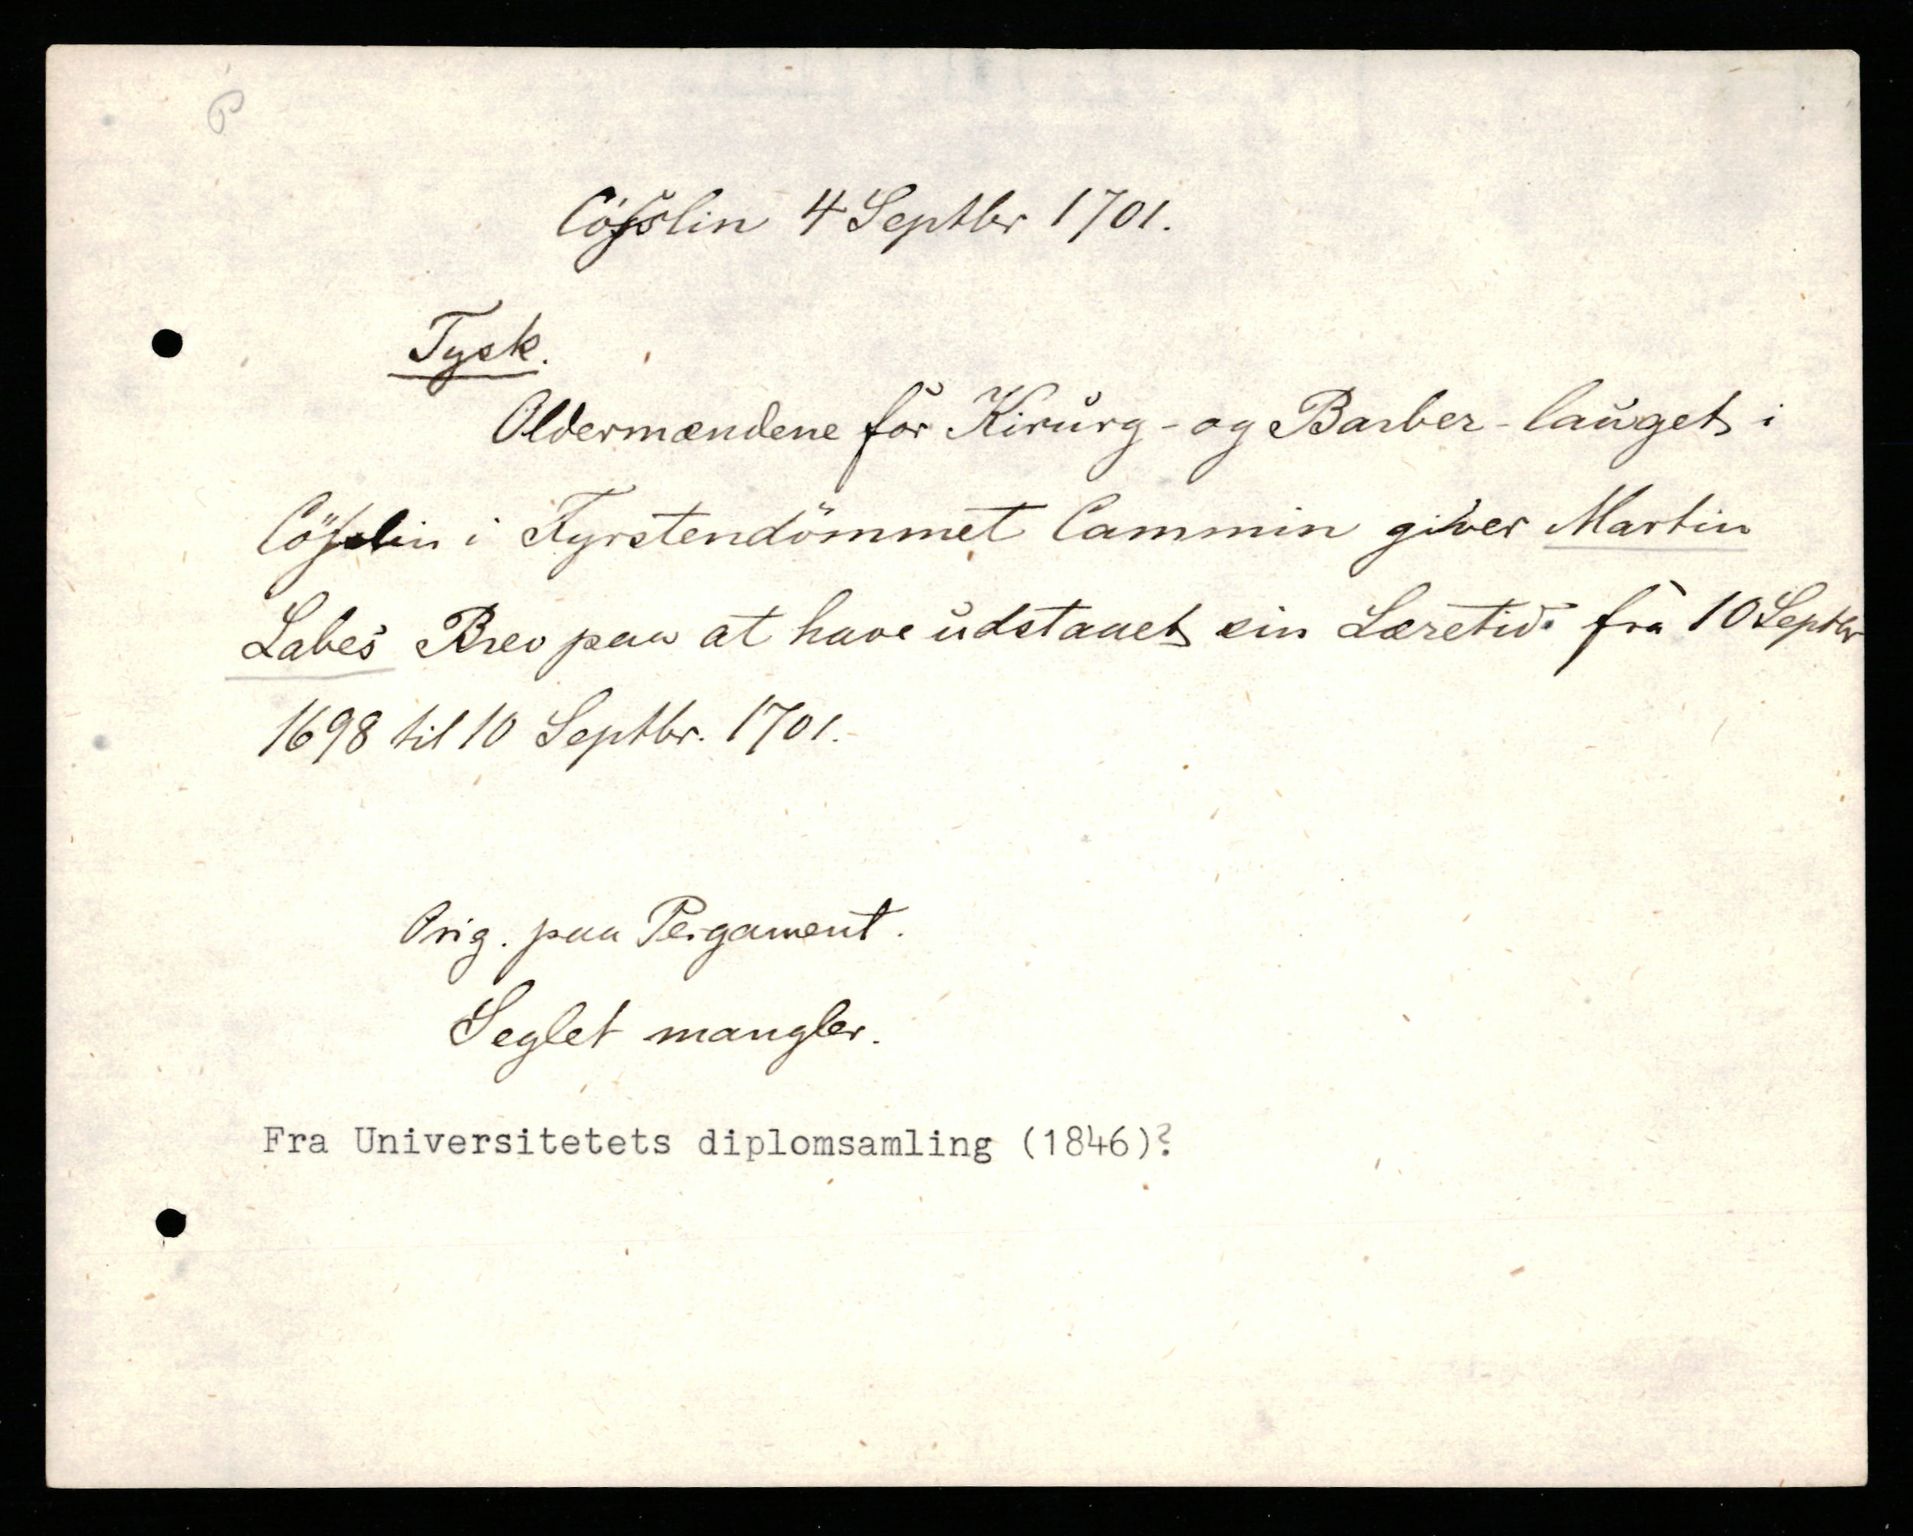 P
Cösslin 4 Septbr 1701.
Tysk.
Oldermændene for Kirurg- og Barber-lauget i
Cösslin i Fyrstendömmet Cammin giver Martin
Labes Brev paa at have udstaaet sin Læretid fra 10 Septbr
1698 til 10 Septbr. 1701.
Orig. paa Pergament.
Seglet mangler.
Fra Universitetets diplomsamling (1846)?